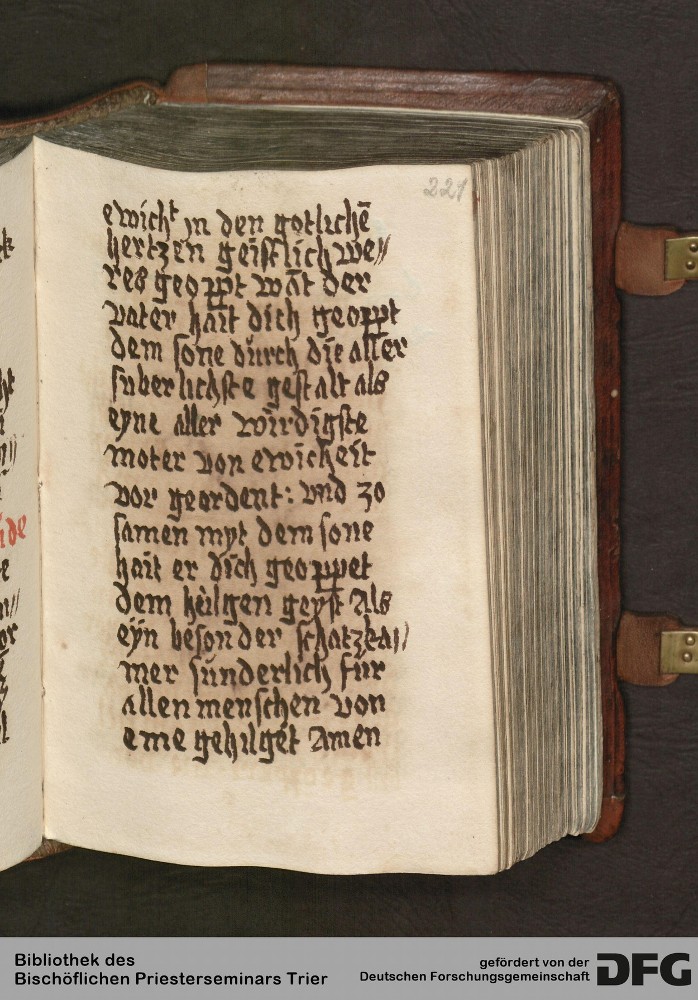 221
ewicht yn den gotlichē
hertzen geistlich we//
res geoppt wāt der
vater hait dich geoppt
dem sone durch die aller
suberlichste gestalt als
eyne aller wirdigste
moter von ewicheit
vor geordent: vnd zo
samen myt dem sone
hait er dich geoppet
dem heilgen geyst Als
eyn besonder schatzkā//
mer sunderlich fur
allen menschen von
eme gehilget Amen
Bibliothek des
Bischöflichen Priesterseminars Trier
gefördert von der
Deutschen Forschungsgemeinschaft
DFG